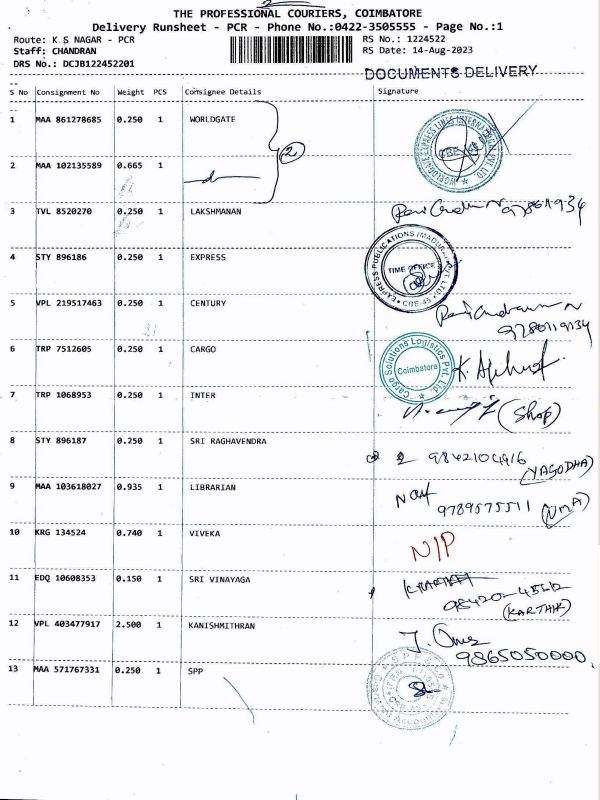 THE PROFESSIONAL COURIERS, COIMBATORE
Delivery Runsheet - PCR - Phone No.:0422-3505555 - Page No.:1
Route: K S NAGAR - PCR RS No.: 1224522
Staff: CHANDRAN RS Date: 14-Aug-2023
DRS No.: DCJB122452201
DOCUMENTS DELIVERY
S No Consignment No Weight PCS Consignee Details Signature
1 MAA 861278685 0.250 1 WORLDGATE
2
2 MAA 102135589 0.665 1
WORLDGATE EXPRESS LINES INTERNATIONAL PVT LTD
CBE
3 TVL 8520270 0.250 1 LAKSHMANAN
4 STY 896186 0.250 1 EXPRESS
EXPRESS PUBLICATIONS (MADURAI) PVT LTD.
TIME OFFICE
CBE-45
5 VPL 219517463 0.250 1 CENTURY
6 TRP 7512605 0.250 1 CARGO
Cargo Solutions Logistics Pvt. Ltd.
Coimbatore
7 TRP 1068953 0.250 1 INTER
(Shop)
8 STY 896187 0.250 1 SRI RAGHAVENDRA
9842104916
(YASODHA)
9 MAA 103618027 0.935 1 LIBRARIAN
9789575511 (UMA)
10 KRG 134524 0.740 1 VIVEKA
N/P
11 EDQ 10608353 0.150 1 SRI VINAYAGA
(KARTHIK)
12 VPL 403477917 2.500 1 KANISHMITHRAN
9865050000
13 MAA 571767331 0.250 1 SPP